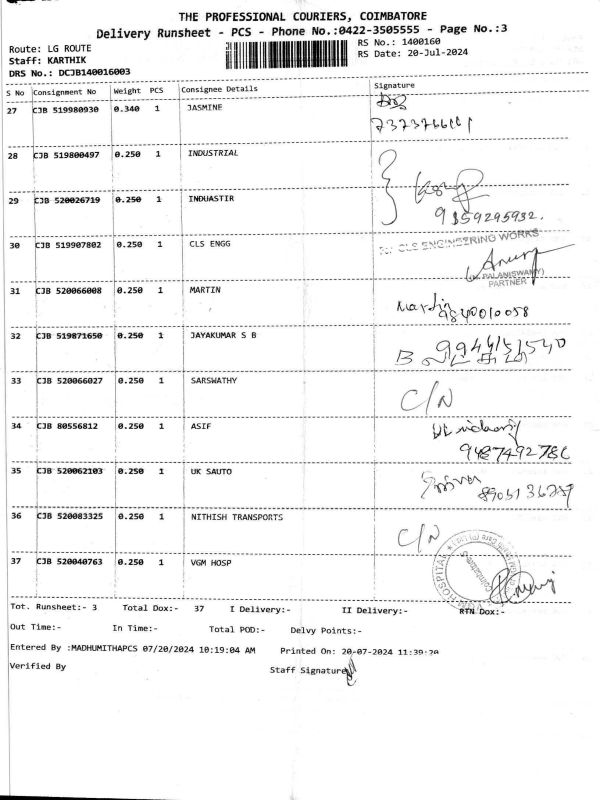 THE PROFESSIONAL COURIERS, COIMBATORE
Delivery Runsheet - PCS - Phone No.:0422-3505555 - Page No.:3
Route: LG ROUTE
RS No.: 1400160
Staff: KARTHIK
RS Date: 20-Jul-2024
DRS No.: DCJB140016003
S No Consignment No Weight PCS Consignee Details Signature
27 CJB 519980930 0.340 1 JASMINE
28 CJB 519800497 0.250 1 INDUSTRIAL
29 CJB 520026719 0.250 1 INDUASTIR
9359295932.
30 CJB 519907802 0.250 1 CLS ENGG
For CLS ENGINEERING WORKS
(PALANISWAMY)
PARTNER
31 CJB 520066008 0.250 1 MARTIN
Martin
9840010058
32 CJB 519871650 0.250 1 JAYAKUMAR S B
33 CJB 520066027 0.250 1 SARSWATHY
C/N
34 CJB 80556812 0.250 1 ASIF
35 CJB 520062103 0.250 1 UK SAUTO
36 CJB 520083325 0.250 1 NITHISH TRANSPORTS
C/N
37 CJB 520040763 0.250 1 VGM HOSP
VGM HOSPITAL
Coimbatore-5
Tot. Runsheet:- 3 Total Dox:- 37 I Delivery:- II Delivery:- RTN Dox:-
Out Time:- In Time:- Total POD:- Delvy Points:-
Entered By :MADHUMITHAPCS 07/20/2024 10:19:04 AM Printed On: 20-07-2024 11:39:20
Verified By Staff Signature